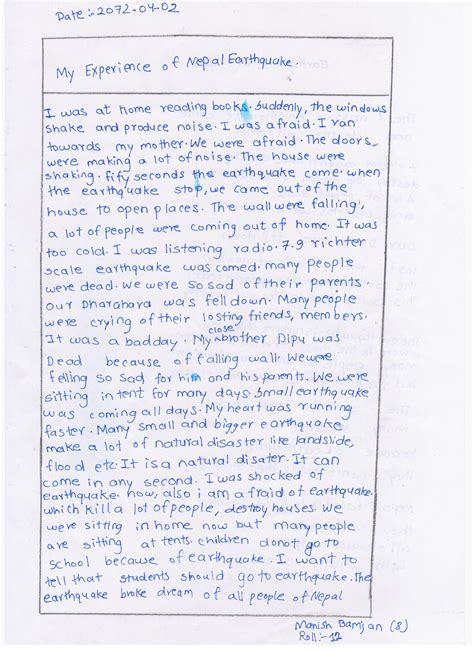 Date:- 2072-04-02
My Experience of Nepal Earthquake.
I was at home reading books. Suddenly, the windows
shake and produce noise. I was afraid. I ran
towards my mother. We were afraid. The doors
were making a lot of noise. The house were
shaking. fify seconds the earthquake come. when
the earthquake stop, we came out of the
house to open places. The wall were falling,
a lot of people were coming out of home. It was
too cold. I was listening radio. 7.9 richter
scale earthquake was comed. many people
were dead. We were so sad of their parents.
our Dharahara was fell down. Many people
were crying of their losting friends, members.
It was a badday. My close brother Dipu was
Dead because of falling wall. We were
felling so sad for him and his parents. We were
sitting in tent for many days. Small earthquake
was coming all days. My heart was running
faster. Many small and bigger earthquake
make a lot of natural disaster like landslide,
flood etc. It is a natural disater. It can
come in any second. I was shocked of
earthquake. now, also i am afraid of earthquake.
which kill a lot of people, destroy houses. We
were sitting in home now but many people
are sitting at tents. children donot go to
school because of earthquake. I want to
tell that students should go to earthquake. The
earthquake broke dream of all people of Nepal
Manish Bamjan (8)
Roll:- 12